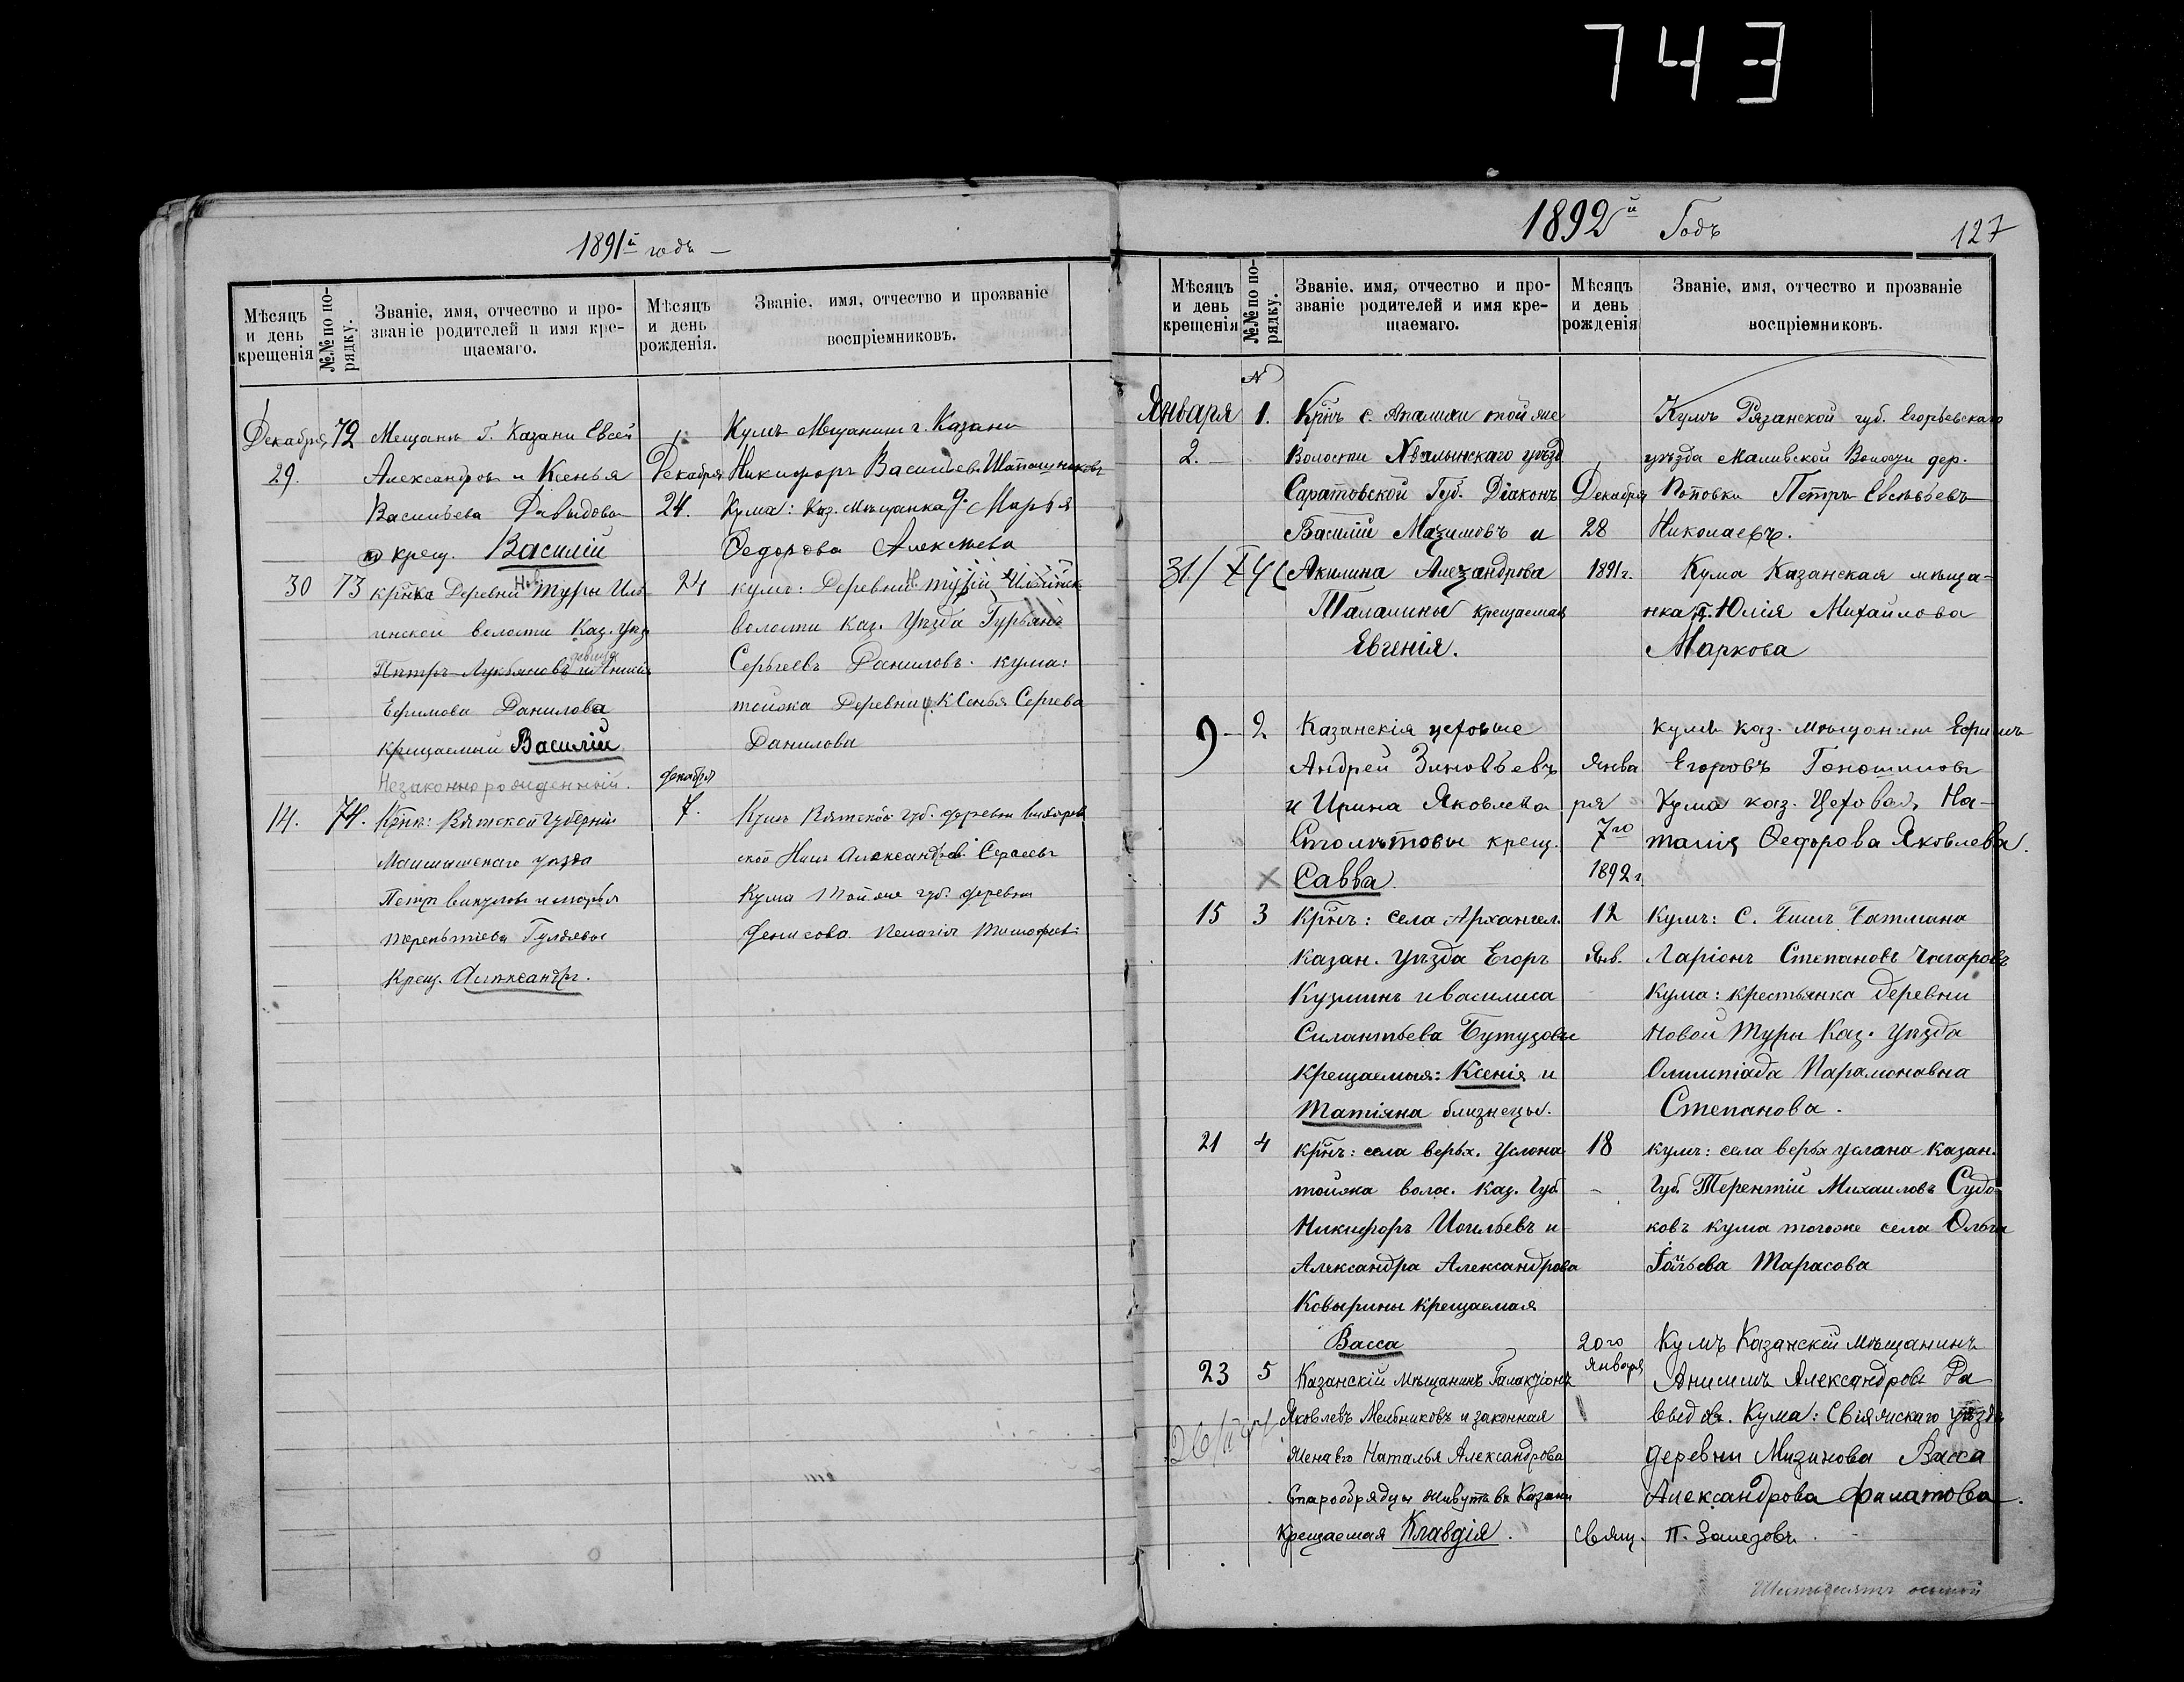 743
1891й годъ —
Мѣсяцъ и день крещенія
№№ по порядку.
Званіе, имя, отчество и прозваніе родителей и имя крещаемаго.
Мѣсяцъ и день рожденія.
Званіе, имя, отчество и прозваніе воспріемниковъ.
Декабря 29.
72
Мещанъ Г. Казани Евсей
Александровъ и Ксенья
Васильева Давыдовы
крещ. Василій
Декабря 24.
Кумъ Мещанинъ г. Казани
Никифоръ Васильевъ
Кума: Каз. мѣщанка д. Марья
Ѳедорова Алексѣева
30
73
крнка Деревни Нов. Туры Иль
инской волости Каз. уѣз.
Петръ Лукьяновъ и девица
Ефимова Данилова
крещаемый Василій
Незаконнорожденный.
24
кумъ: Деревни Н. Туры Ильинск
волости Каз. Уѣзда Гурьянъ
Сергѣевъ Даниловъ. кума:
тойже Деревни д. Ксенья Сергева
Данилова
14.
74.
Крнъ: Вятской Губерніи
уѣзда
Петръ
Крещ. Александръ.
декабря 7.
Кумъ Вятской губ. деревни
Александров Сергеевъ
Кума той же губ. деревни
Денисова Пелагія
1892й Годъ
127
Мѣсяцъ и день крещенія
№№ по порядку.
Званіе, имя, отчество и прозваніе родителей и имя крещаемаго.
Мѣсяцъ и день рожденія
Званіе, имя, отчество и прозваніе воспріемниковъ.
N
Января 2.—
1.
Крнъ с. Апалихи той же
Волости Хвалынскаго уѣзд
Саратовской Губ. Діаконъ
Василій Мазимовъ и
Акилина Алезандрова
Талалины крещаемая
Евгенія.
Декабря 28 1891 г.
Кумъ Рязанской губ. Егорьевскаго
уѣзда Маливской Волости дер.
Поповки Петръ Евсѣевъ
Николаевъ.
Кума Казанская мѣща-
нка д. Юлія Михайлова
Маркова
9-
2
Казанскія цеховые
Андрей Зиновьевъ
и Ирина Яковлева
Столѣтовы крещ.
× Савва.
Января 7го 1892 г.
кумъ каз. мѣщанинъ Ефимъ
Егоровъ
Кума каз. Цеховая, На-
талія Ѳедорова Яковлева.
15
3
крнъ: села Архангел.
казан. уѣзда Егоръ
Кузминъ и василиса
Силантьева Бутузовы
крещаемыя: Ксенія и
Татіяна близнецы.
12 Янв.
Кумъ: С.
Ларіонъ Степановъ
Кума: крестьянка деревни
Новой Туры Каз. уѣзда
Олимпіада Парамоновна
Степанова.
21
4
крнъ: села верьх. Услона
тойжа волос. Каз. Губ.
Никифоръ и
Александра Александрова
Ковырины крещаемая
Васса
18
кумъ: села верьх услана Казан.
Губ. Терентій Михаиловъ Судо-
ковъ кума тогоже села Ольга
Тарасова
23
5
Казанскій мѣщанинъ Галакціонъ
Яковлевъ Мельниковъ и законная
жена его Наталья Александрова
Старообрядцы живутъ въ Казани
крещаемая Клавдія.
20го Января
Кумъ Казанскій Мѣщанинъ
Анисимъ Александровъ Да
выдов. Кума: Свіяжскаго уѣзда
деревни Мизинова Васса
Александрова Филатова.
Свящ. П. Залезовъ.
Шестьдесятъ осьмой